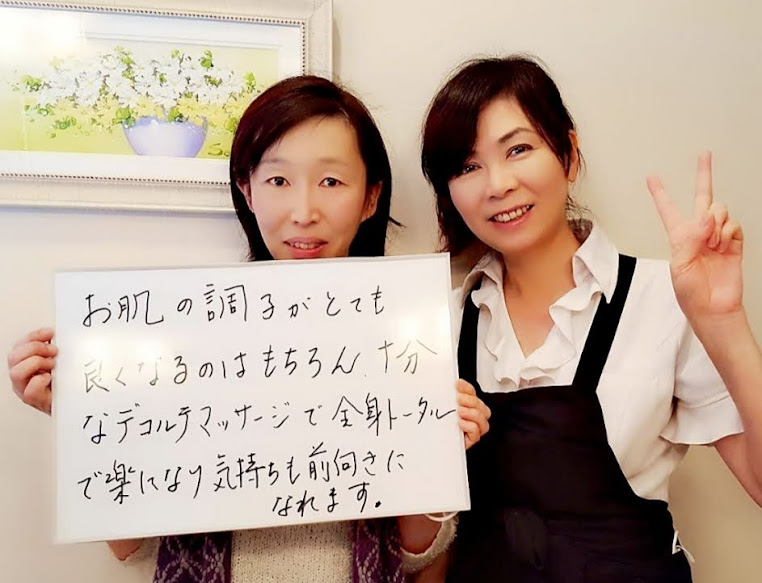 お肌の調子がとても
良くなるのはもちろん、十分
なデコルテマッサージで全身トータル
で楽になり気持ちも前向きに
なれます。